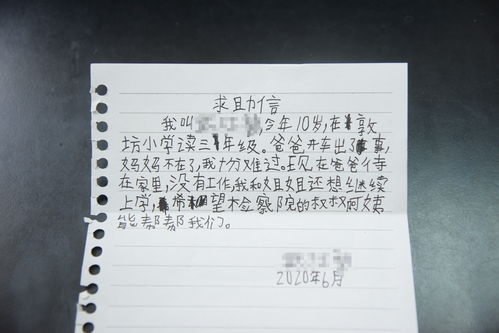 求助信
我叫,今年10岁,在敦
坊小学读三年级。爸爸开车出了事,
妈妈不在了,我十分难过。现在爸爸待
在家里,没有工作,我和姐姐还想继续
上学,希望检察院的叔叔阿姨
能帮帮我们。
2020年6月